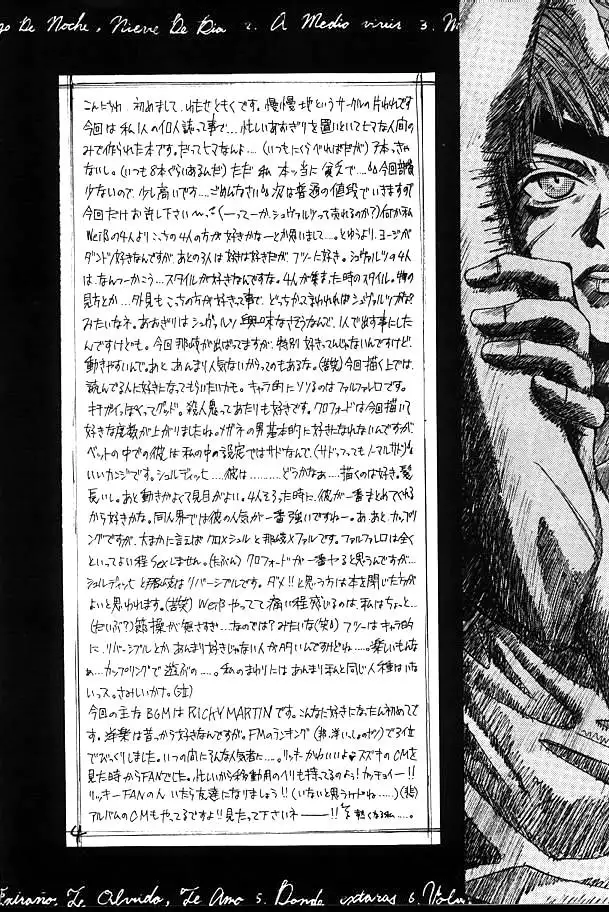 go De Noche, Nieve De Dia 2. A Medio vivir 3. M
こんにちわ 初めまして、ともくです。慢慢地というサークルの片われです
今回は私1人の個人誌って事で…忙しいあおぎりを置いといてヒマな人間の
みで作られた本です。だってヒマなんよ…(いつもにくらべればだが)ア本、さん
ないし。(いつも8本ぐらいあるんだ)ただ 私 本ッ当に貧乏で…今回部数
少ないので、少し高いです…ごめんなさい 次は普通の値段でいきますので
今回だけお許し下さい〜(ーってーか、シュヴァルツって売れるのか?)何か私
Weißの4人よりこっちの4人の方が好きかなーとか思いまして…とゆうより、ヨージが
ダントツ好きなんですが、あとの3人は 好きだが、フツーに好き。シュヴァルツの4人
は、なんつーかこう…スタイルが好きなんですな。4人が集まった時のスタイル。物の
見方とか…外見も こっちの方が好きって事で、どっちかってきかれればシュヴァルツかな
みたいなネ。あおぎりはシュヴァルツ興味なさそうなんで、1人で出す事にした
んですけども。今回那岐が出ばってますが、特別 好きってんじゃないんですけど、
動きやすいんで。あと、あんまり人気ないからってのもあるな。(苦笑)今回描く上では、
読んでる人に好きになってもらいたいかも。キャラ的にソソるのはファルファレロです。
キチガイっぽくってグッド。殺人鬼ってあたりも好きです。クロフォードは今回描いて
好きな度数が上がりましたね。メガネの男基本的に好きになれないんですが
ベットの中での彼は 私の中の設定ではサドなんで、(サドっつってもノーマルサド)
いいカンジです。シュルディッヒ…彼は………どうかなぁ…描くのは好き。髪
長いし。あと動きがよくて見目がよい。4人そろった時に、彼が一番まとめてくれる
から好きかな。同人界では彼の人気が一番強いですねー。あ、あと、カップリ
ングですが、大まかに言えばクロ×シュルと那岐×ファルです。ファルファレロは全く
といってよい程Sexしません。(たぶん)クロフォードが一番ヤると思うんですが…
シュルディッヒと那岐はリバーシブルです。ダメ!!と思う方は本を閉じた方が
よいと思われます。(苦笑)Weißやってて痛い程感じるのは、私はちょっと…
(だいぶ?)節操が無さすぎ…なのでは?みたいな(笑)フツーはキャラ的
に、リバーシブルとか あんまり好きじゃない人が多いんですけどね…。楽しいもんな
ぁ…カップリングで遊ぶの…。私のまわりには あんまり私と同じ人種はいな
いっス。さみしいかナ。(泣)
今回の主なBGMはRICKY MARTINです。こんなに好きになったん初めてで
す。洋楽は昔っから好きなんですが。FMのランキング(洋楽)で3位
でびっくりしました。いつの間にそんな人気者に…。リッキーかわいいよ♥スズキのCMを
見た時からFANでした。忙しいから移動用のイリも持ってるのよぅ!カッチョイー!!
リッキーFANの人いたら友達になりましょう!!(いないと思うケドね……)(悲)
アルバムのCMもやってるですよ!!見たって下さいネ───!!熱くなる私…。
4
Extraño. Te Olvido, Te Amo 5. Donde estaras 6. Volv